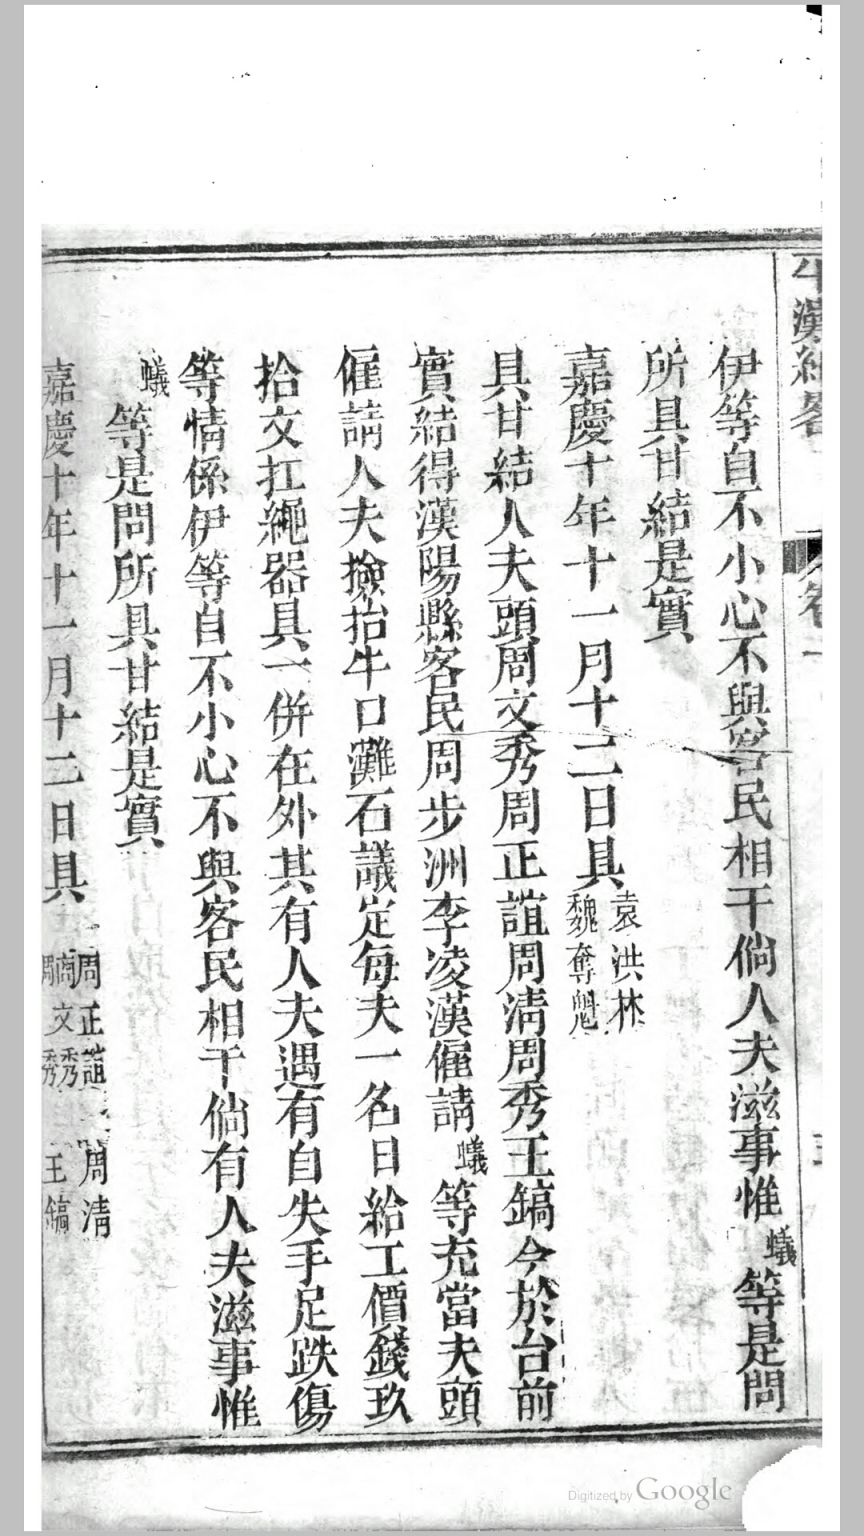 伊等自不小心不與客民相干倘人夫滋事惟蟻等是問
所具甘結是實
嘉慶十年十一月十二日具
袁洪林
魏奪魁
具甘結人夫頭周文秀周正誼周清周秀王鎬今於台前
實結得漢陽縣客民周步洲李凌漢僱請蟻等充當夫頭
僱請人夫撿抬牛口灘石議定每夫一名日給工價錢玖
拾文扛繩器具一併在外其有人夫遇有自失手足跌傷
等情係伊等自不小心不與客民相干倘有人夫滋事惟
蟻等是問所具甘結是實
嘉慶十年十一月十二日具
周正誼
周清
文秀
秀
王鎬
Digitized by Google